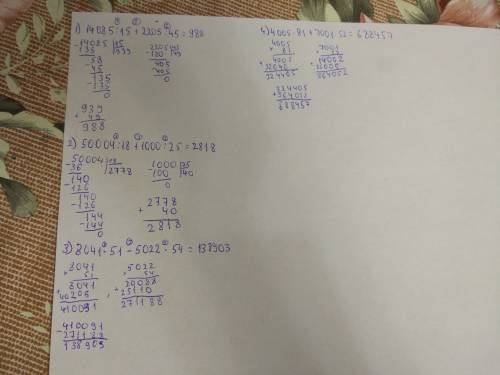 1) 14085:15+2205:45=988
14085 |15
135 |939
58
45
135
135
0
2205 |45
180 |49
405
405
0
939
+ 49
988
2) 50004:18+1000:25=2818
50004 |18
36 |2778
140
126
140
-126
144
-144
0
1000 |25
-100 |40
0
2778
+ 40
2818
3) 8041·51-5022·54=138903
8041
× 51
8041
+40205
410091
5022
× 54
20088
+25110
271188
-410091
271188
138903
4) 4005·81+7001·52=688457
4005
× 81
4005
+32040
324405
7001
× 52
14002
+35005
364052
324405
+364052
688457